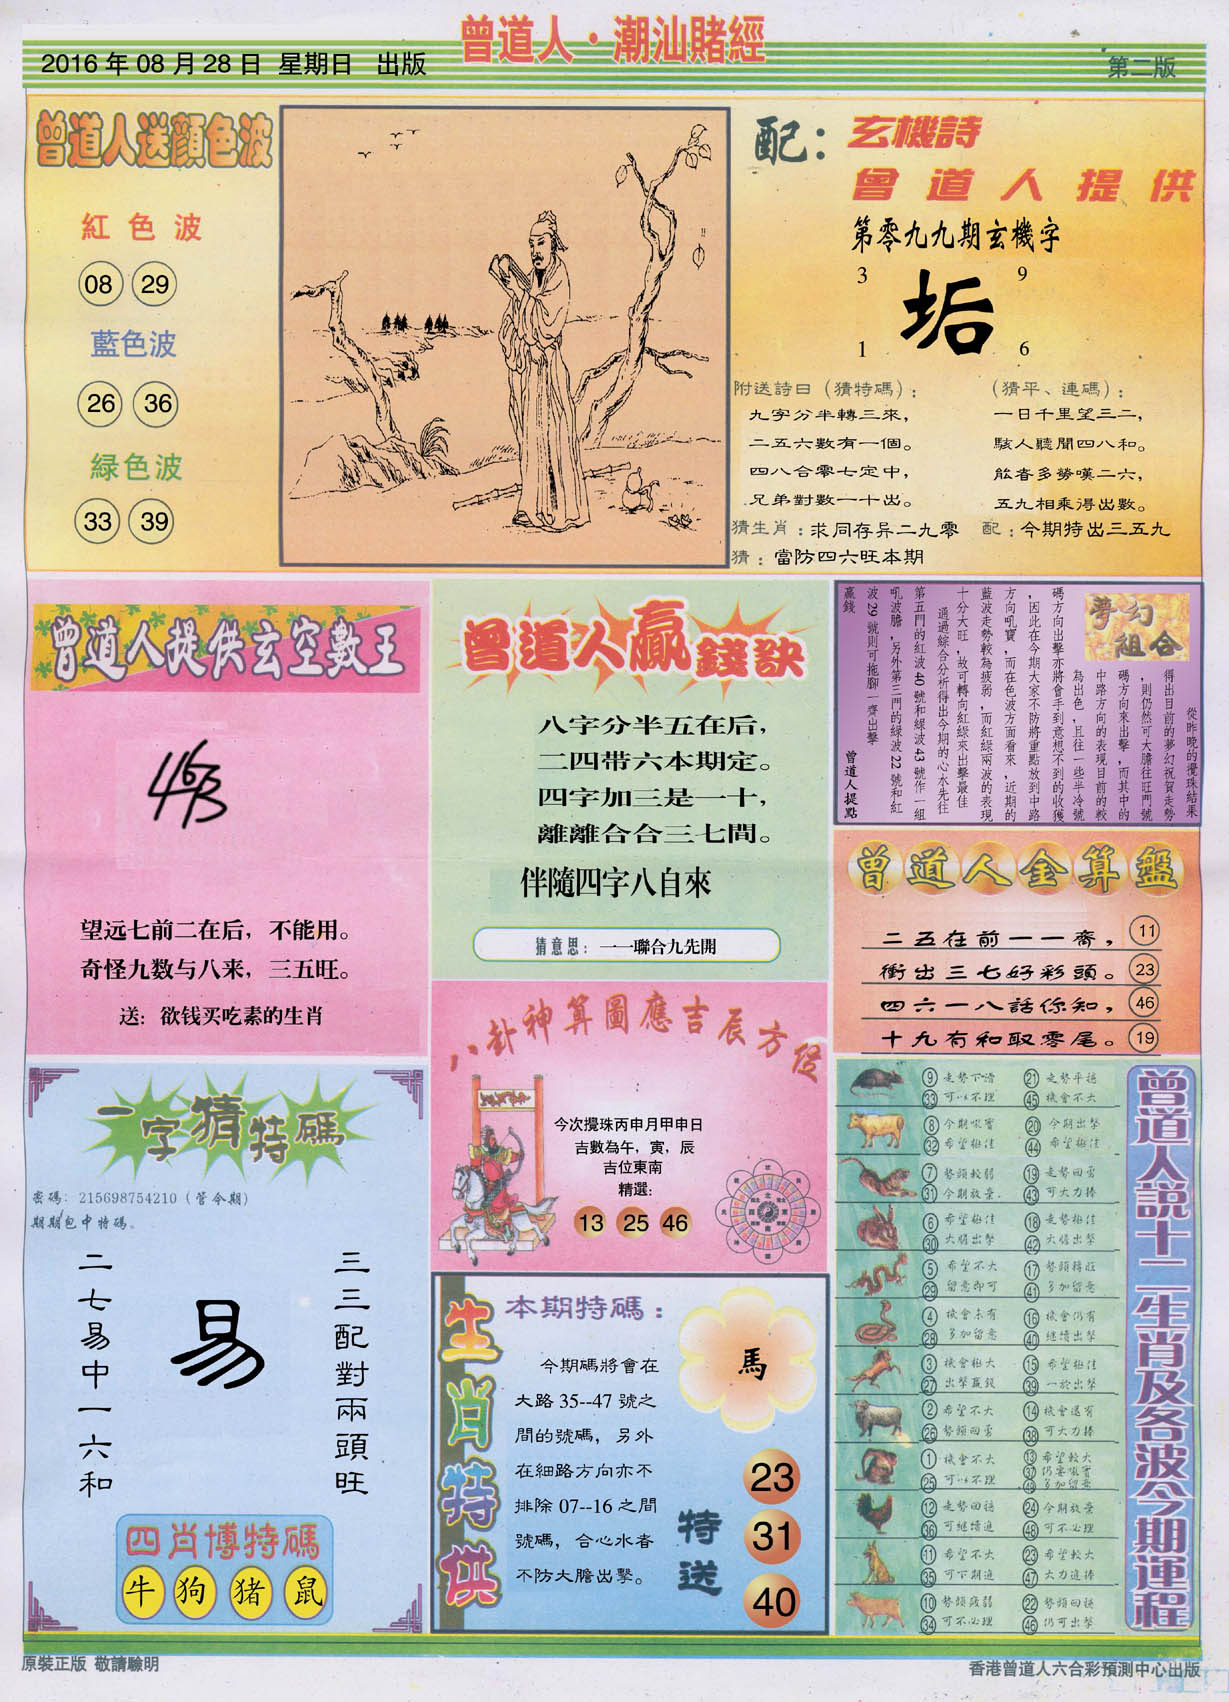 曾道人·潮汕賭經
2016年08月28日 星期日 出版
第二版
曾道人送顏色波
紅色波
08 29
藍色波
26 36
緑色波
33 39
配：玄機詩
曾道人提供
第零九九期玄機字
3 9
垢
1 6
附送詩曰（猜特碼）：
九字分半轉三來，
二五六數有一個。
四八合零七定中，
兄弟對數一十出。
（猜平、連碼）：
一日千里望三二，
駭人聽聞四八和。
能者多勞嘆二六，
五九相乘得出數。
猜生肖：求同存异二九零
配：今期特出三五九
猜：當防四六旺本期
曾道人提供玄空數王
463
望远七前二在后，不能用。
奇怪九数与八来，三五旺。
送：欲钱买吃素的生肖
曾道人贏錢訣
八字分半五在后，
二四带六本期定。
四字加三是一十，
離離合合三七間。
伴隨四字八自來
猜意思：一一聯合九先開
夢幻組合
從昨晚的攪珠結果
得出目前的夢幻祝賀走勢
，則仍然可大膽往旺門號
碼方向來出擊，而其中的
中路方向的表現目前的較
為出色，且往一些半冷號
碼方向出擊亦將會手到意想不到的收獲
，因此在今期大家不防將重點放到中路
方向吼寶，而在色波方面看來，近期的
藍波走勢較為疲弱，而紅綠兩波的表現
十分大旺，故可轉向紅綠來出擊最佳
通過綜合分析得出今期的心水先往
第五門的紅波40號和綠波43號作一組
吼波膽，另外第三門的綠波22號和紅
波29號則可拖腳一齊出擊
贏錢
曾道人提點
曾道人金算盤
二五在前一一齋， 11
衝出三七好彩頭。 23
四六一八話你知， 46
十九有和取零尾。 19
八卦神算圖應吉辰方位
今次攪珠丙申月甲申日
吉數為午，寅，辰
吉位東南
精選：
13 25 46
一字猜特碼
密碼：215698754210（管今期）
期期包中特碼。
三三配對兩頭旺
易
二七易中一六和
四肖博特碼
牛 狗 猪 鼠
生肖特供
本期特碼：
今期碼將會在
大路35--47號之
間的號碼，另外
在細路方向亦不
排除07--16之間
號碼，合心水者
不防大膽出擊。
馬
特送
23
31
40
曾道人説十二生肖及各波今期運程
9 走勢下滑 21 走勢平穩
33 可以不理 45 機會不大
8 今期吼寶 20 今期出擊
32 希望極佳 44 希望極佳
7 勢頭較弱 19 走勢回勇
31 今期放棄 43 可大力捧
6 希望極佳 18 走勢極佳
30 大膽出擊 42 大膽出擊
5 希望不大 17 勢頭轉旺
29 留意即可 41 多加留意
4 機會未有 16 機會仍有
28 多加留意 40 繼續出擊
3 機會極大 15 希望極佳
27 出擊贏錢 39 一於出擊
2 希望不大 14 機會還有
26 勢頭回勇 38 可大力捧
1 機會不大 13 希望較大
25 可以不理 37 仍要吼寶
49 多加留意
12 走勢回穩 24 今期放棄
36 可繼續追 48 可不必理
11 希望不大 23 希望較大
35 可下期追 47 大力追捧
10 勢頭疲弱 22 勢頭回穩
34 可不必理 46 仍可出擊
原裝正版 敬請驗明
香港曾道人六合彩預測中心出版